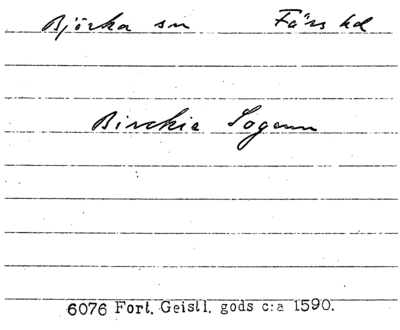 Björka sn Färs hd
Birckie Sogenn
6076 Fort. Geistl. gods c:a 1590.